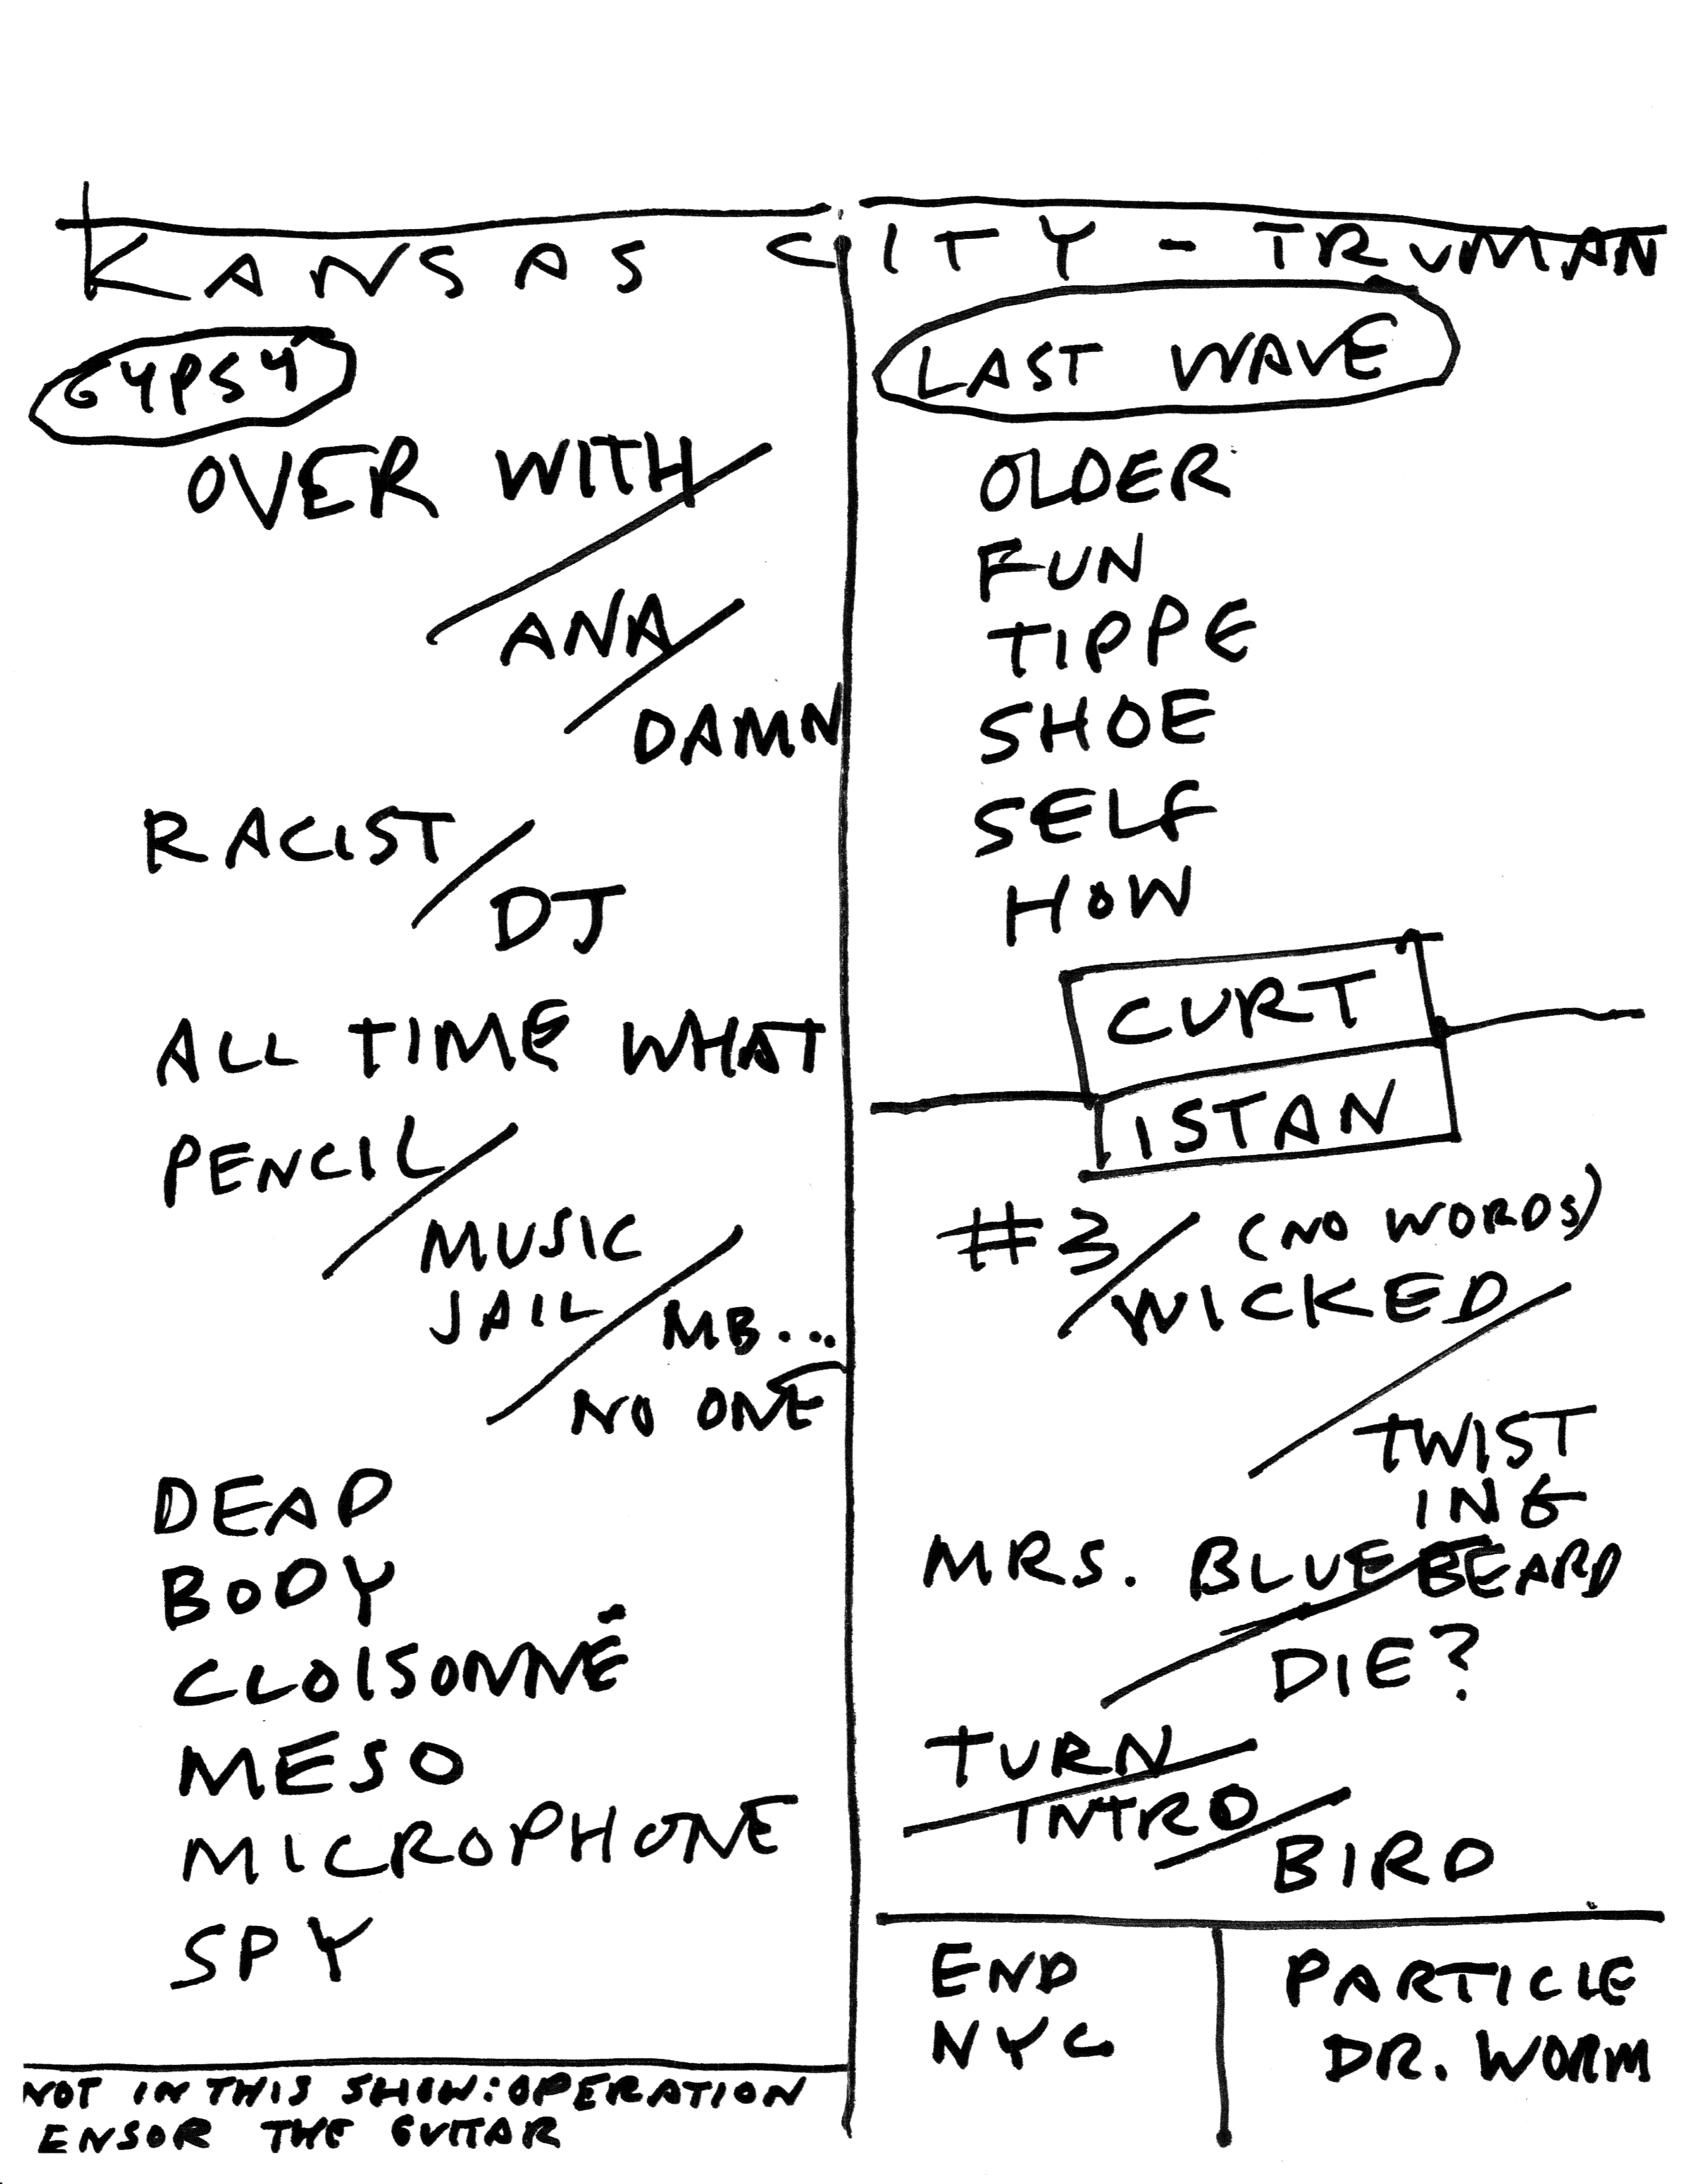 KANSAS CITY - TRUMAN
GYPSY
OVER WITH
ANA
DAMN
RACIST
DJ
ALL TIME WHAT
PENCIL
MUSIC
JAIL
MB...
NO ONE
DEAD
BODY
CLOISONNÉ
MESO
MICROPHONE
SPY
NOT IN THIS SHOW: OPERATION
ENSOR THE GUITAR
LAST WAVE
OLDER
FUN
TIPPE
SHOE
SELF
HOW
CURT
ISTAN
#3 / (NO WORDS)
WICKED
TWIST
ING
MRS. BLUEBEARD
DIE?
TURN
INTRO
BIRD
END
NYC
PARTICLE
DR. WORM